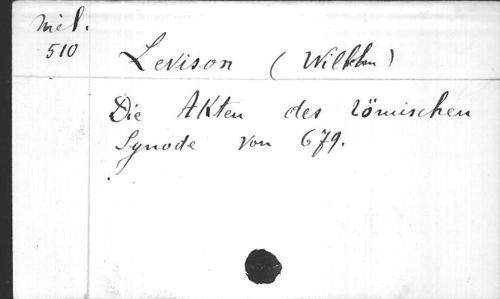 Mél.
510
Levison (Wilhelm)
Die Akten des römischen
Synode von 679.